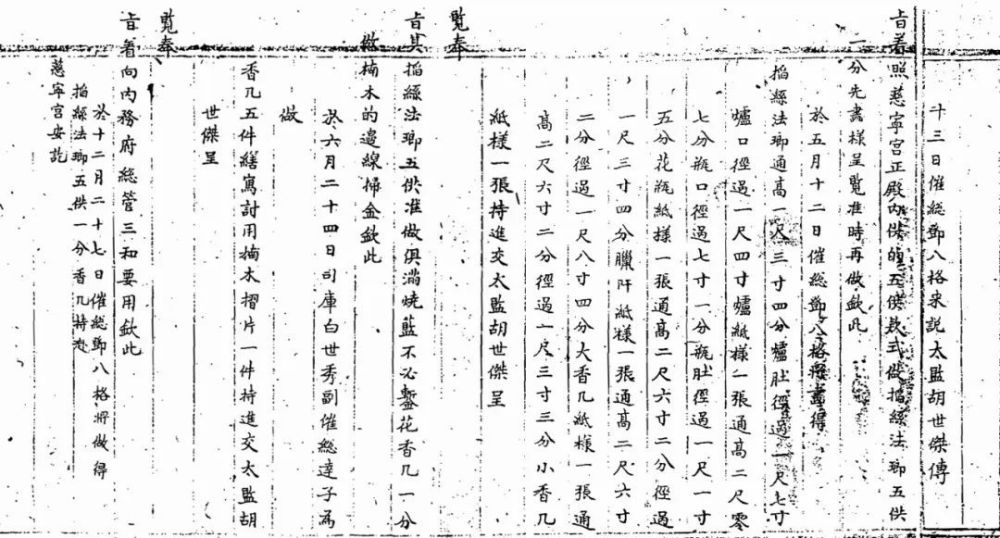 十三日催總鄧八格來說太監胡世傑傳
旨着照慈寧宮正殿內供的五供款式做掐絲法瑯五供
一分先畫樣呈覽准時再做欽此
於五月十二日催總鄧八格將畫得
掐絲法瑯通高一尺三寸四分爐肚徑過一尺七寸
爐口徑過一尺四寸爐紙樣一張通高二尺零
七分瓶口徑過七寸一分瓶肚徑過一尺一寸
五分花瓶紙樣一張通高二尺六寸二分徑過
一尺三寸四分臘阡紙樣一張通高二尺六寸
二分徑過一尺八寸四分大香几紙樣一張通
高二尺六寸二分徑過一尺三寸三分小香几
紙樣一張持進交太監胡世傑呈
覽奉
旨其掐絲法瑯五供准做俱滿燒藍不必鏨花香几一分
做楠木的邊線掃金欽此
於六月二十四日司庫白世秀副催總達子為
做
香几五件繕寫討用楠木摺片一件持進交太監胡
世傑呈
覽奉
旨着向內務府總管三和要用欽此
於十二月二十七日催總鄧八格將做得
掐絲法瑯五供一分香几持赴
慈寧宮安訖